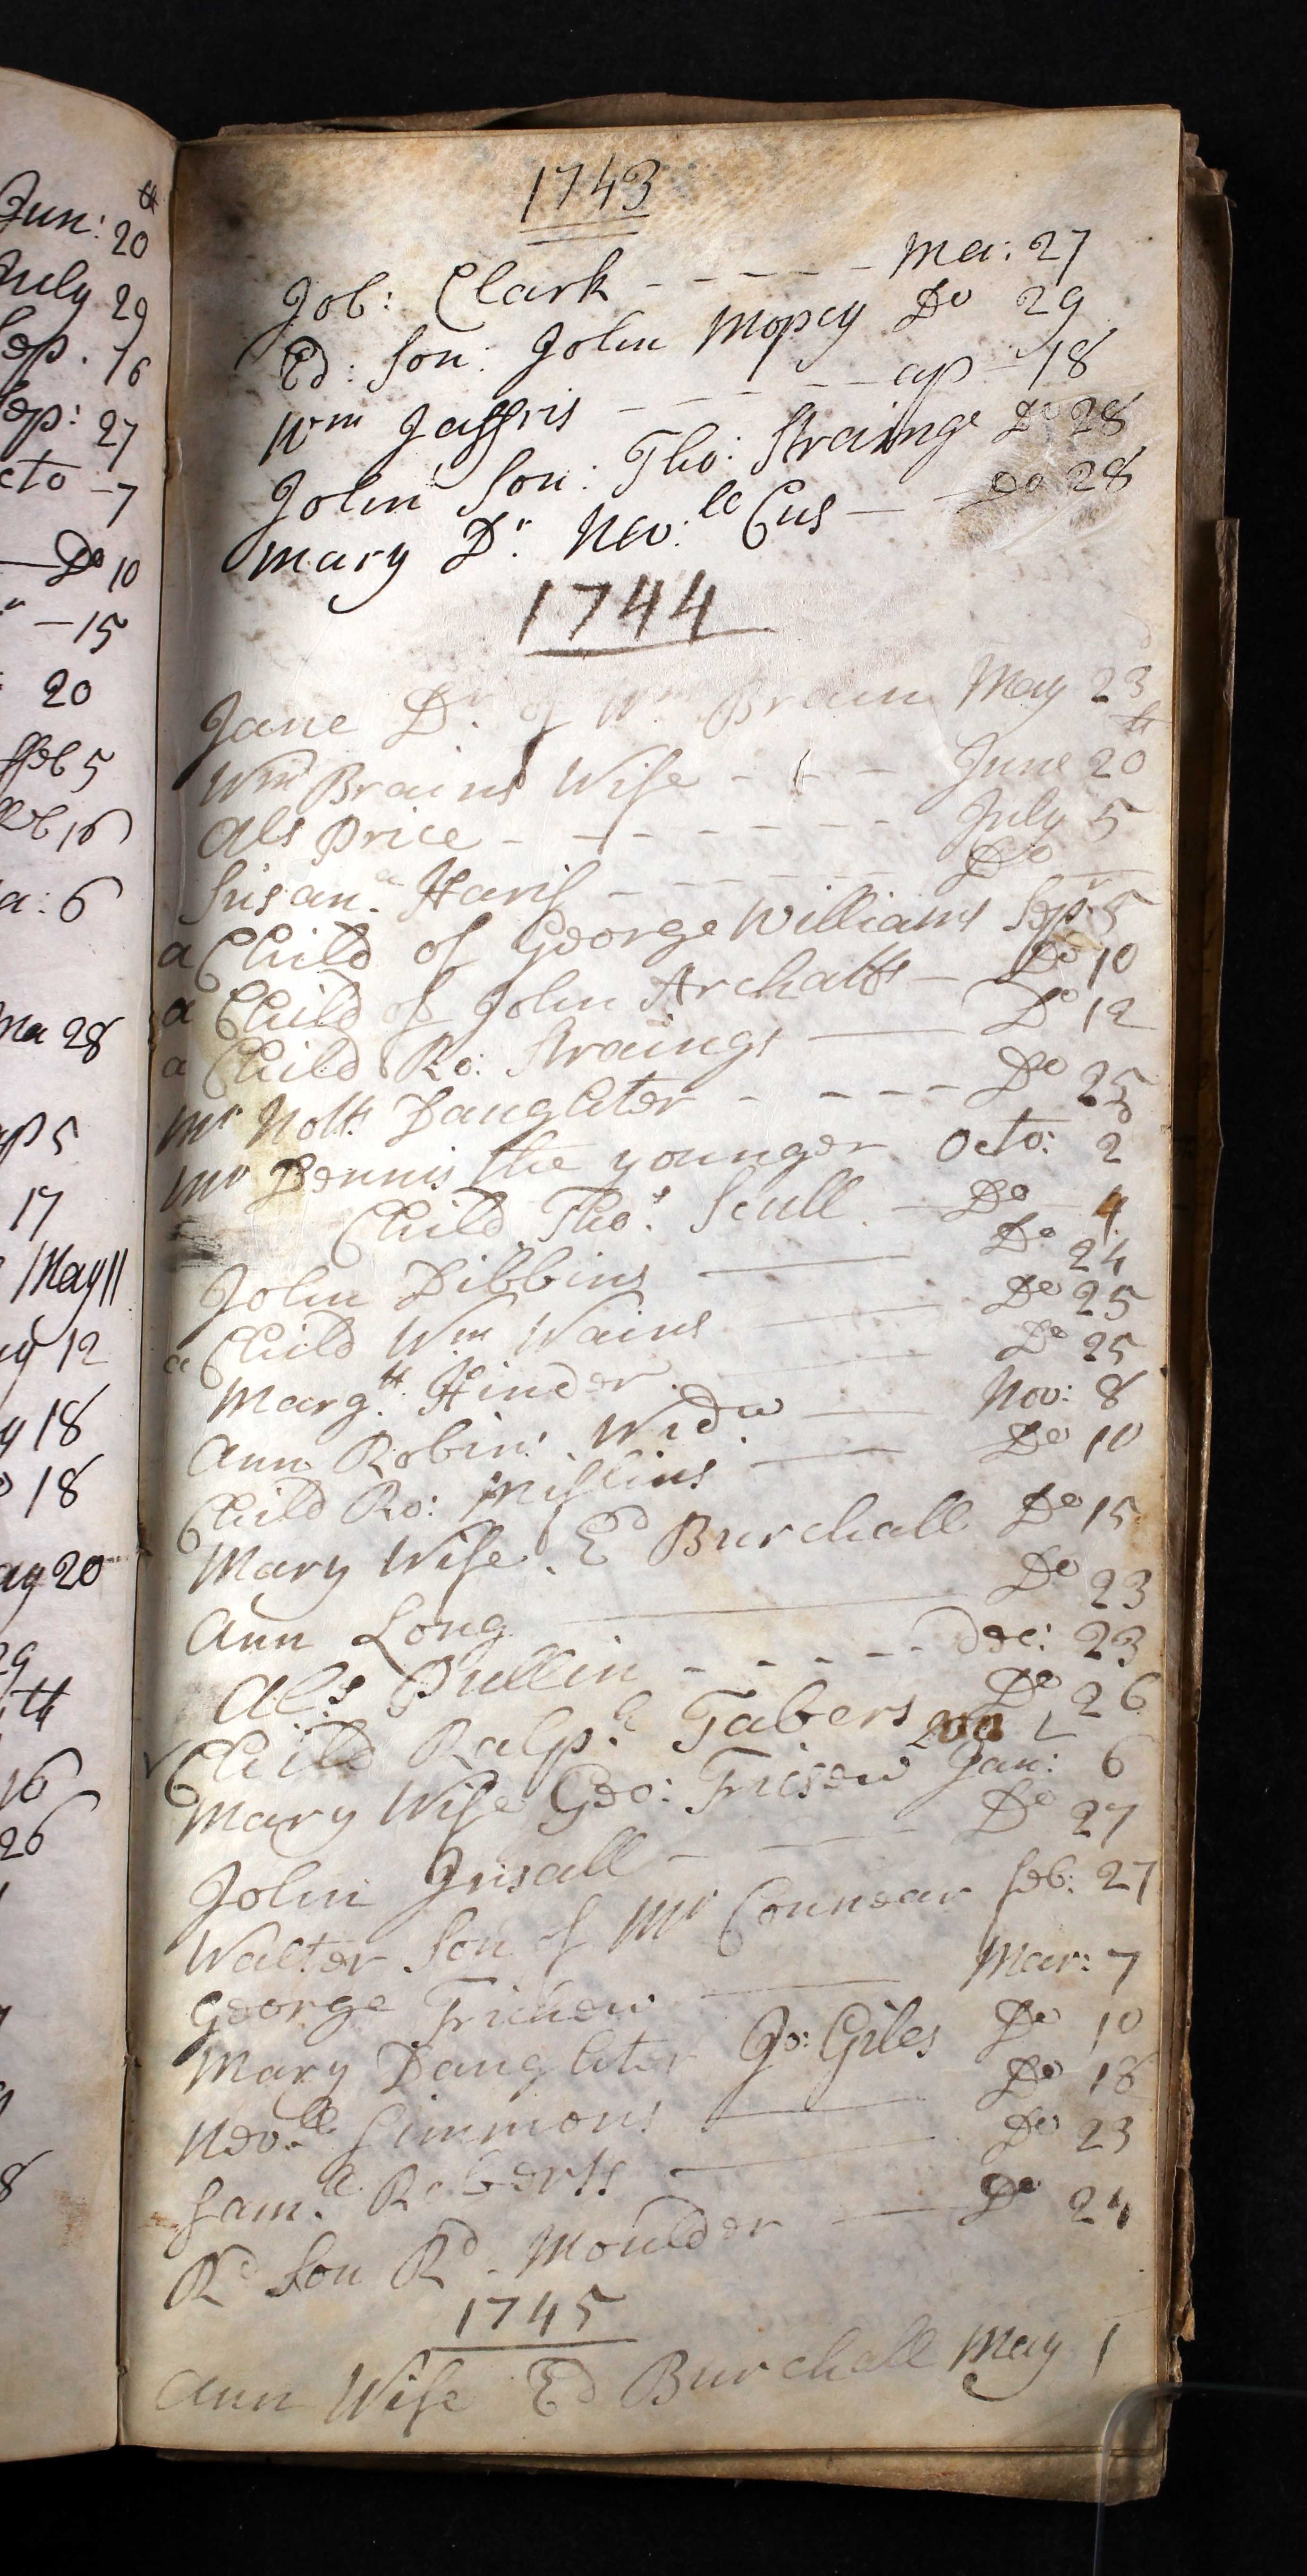 Jun: 20th
July 29
Sep. 16
Sep: 27
Octo - 7
Do 10
- 15
20
Feb 5
Feb 16
a: 6
ma 28
ap 5
17
May 11
ay 12
y 18
18
ay 20
29
16
26
8
1743
Job: Clark - - - - - Ma: 27
Ed: Son: John Mopey Do 29
Wm Jaffris - - - - - ap 18
John Son: Tho: Strainge Do 28
Mary Dr. Nev:ll Cus — Do 28
1744
Jane Dr. of Wm Brain May 23d
Wm Brains Wife - - - June 20th
Als Price - - - - - - - July 5
Susana. Haris - - - - - Do —
a Child of George Williams Sepr 5
a Child of John Archatts — Do 10
a Child Ro: Straings — Do 12
Mr Nott Daughter - - - - Do 25
Mr Dennis the younger Octo: 2d
Child Thos. Scull — Do 4
John Dibbins — Do 24
a Child Wm Wains — Do 25
Margtt. Hinder — Do 25
Ann Robins Widw — Nov: 8
Child Ro: Miflins — Do 10
Mary Wife Ed Burchall Do 15
Ann Long — Do 23
Als. Pullin - - - - - Dec: 23
Child Ralph Tabers Do 26
Mary Wife Geo: Fricsew Jan: 6
John Grisall - — Do 27
Walter Son of Mr Connear Feb: 27
George Frickew — Mar: 7
Mary Daughter Jo: Giles Do 10
Nevll Simmons — Do 18
Samll. Roberts — Do 23
Rd Son Rd Moulder — Do 24
1745
Ann Wife Ed Burchall May 1